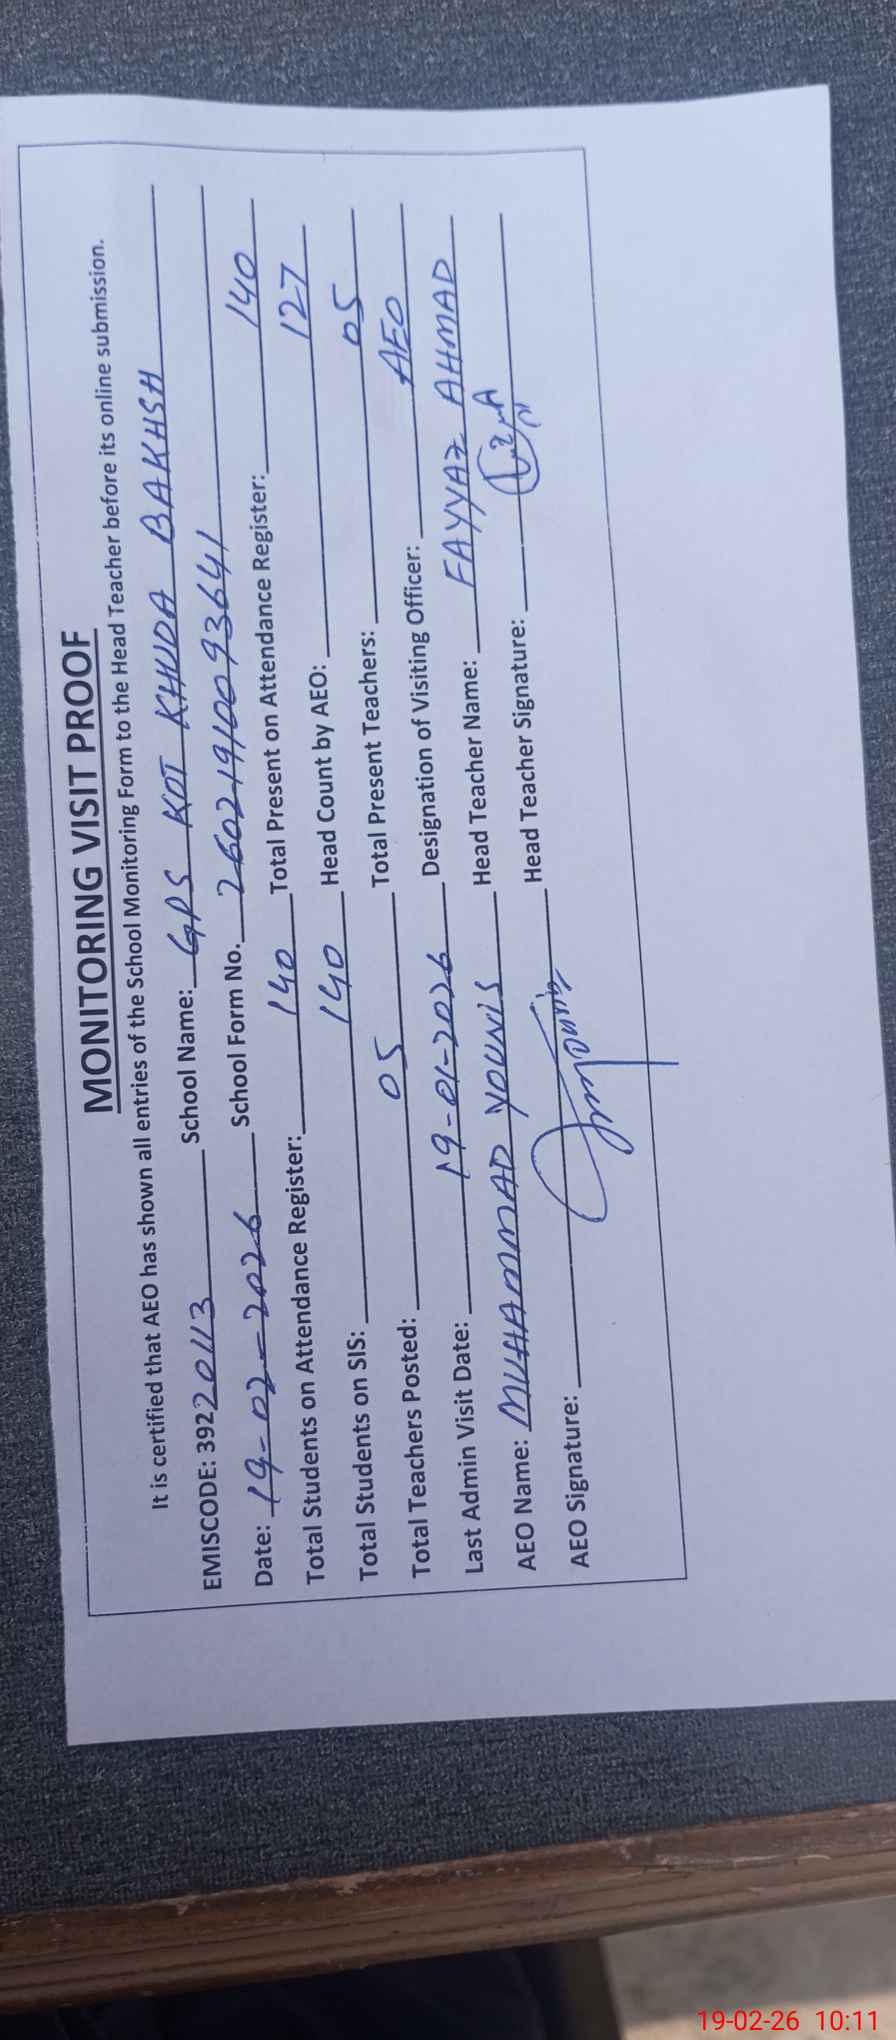 MONITORING VISIT PROOF
It is certified that AEO has shown all entries of the School Monitoring Form to the Head Teacher before its online submission.
EMISCODE: 39220113 School Name: GPS KOT KHUDA BAKHSH
Date: 19-02-2026 School Form No. 26021910093641
Total Students on Attendance Register: 140 Total Present on Attendance Register: 140
Total Students on SIS: 140 Head Count by AEO: 127
Total Teachers Posted: 05 Total Present Teachers: 05
Last Admin Visit Date: 19-01-2026 Designation of Visiting Officer: AEO
AEO Name: MUHAMMAD YOUNIS Head Teacher Name: FAYYAZ AHMAD
AEO Signature: Head Teacher Signature:
19-02-26 10:11